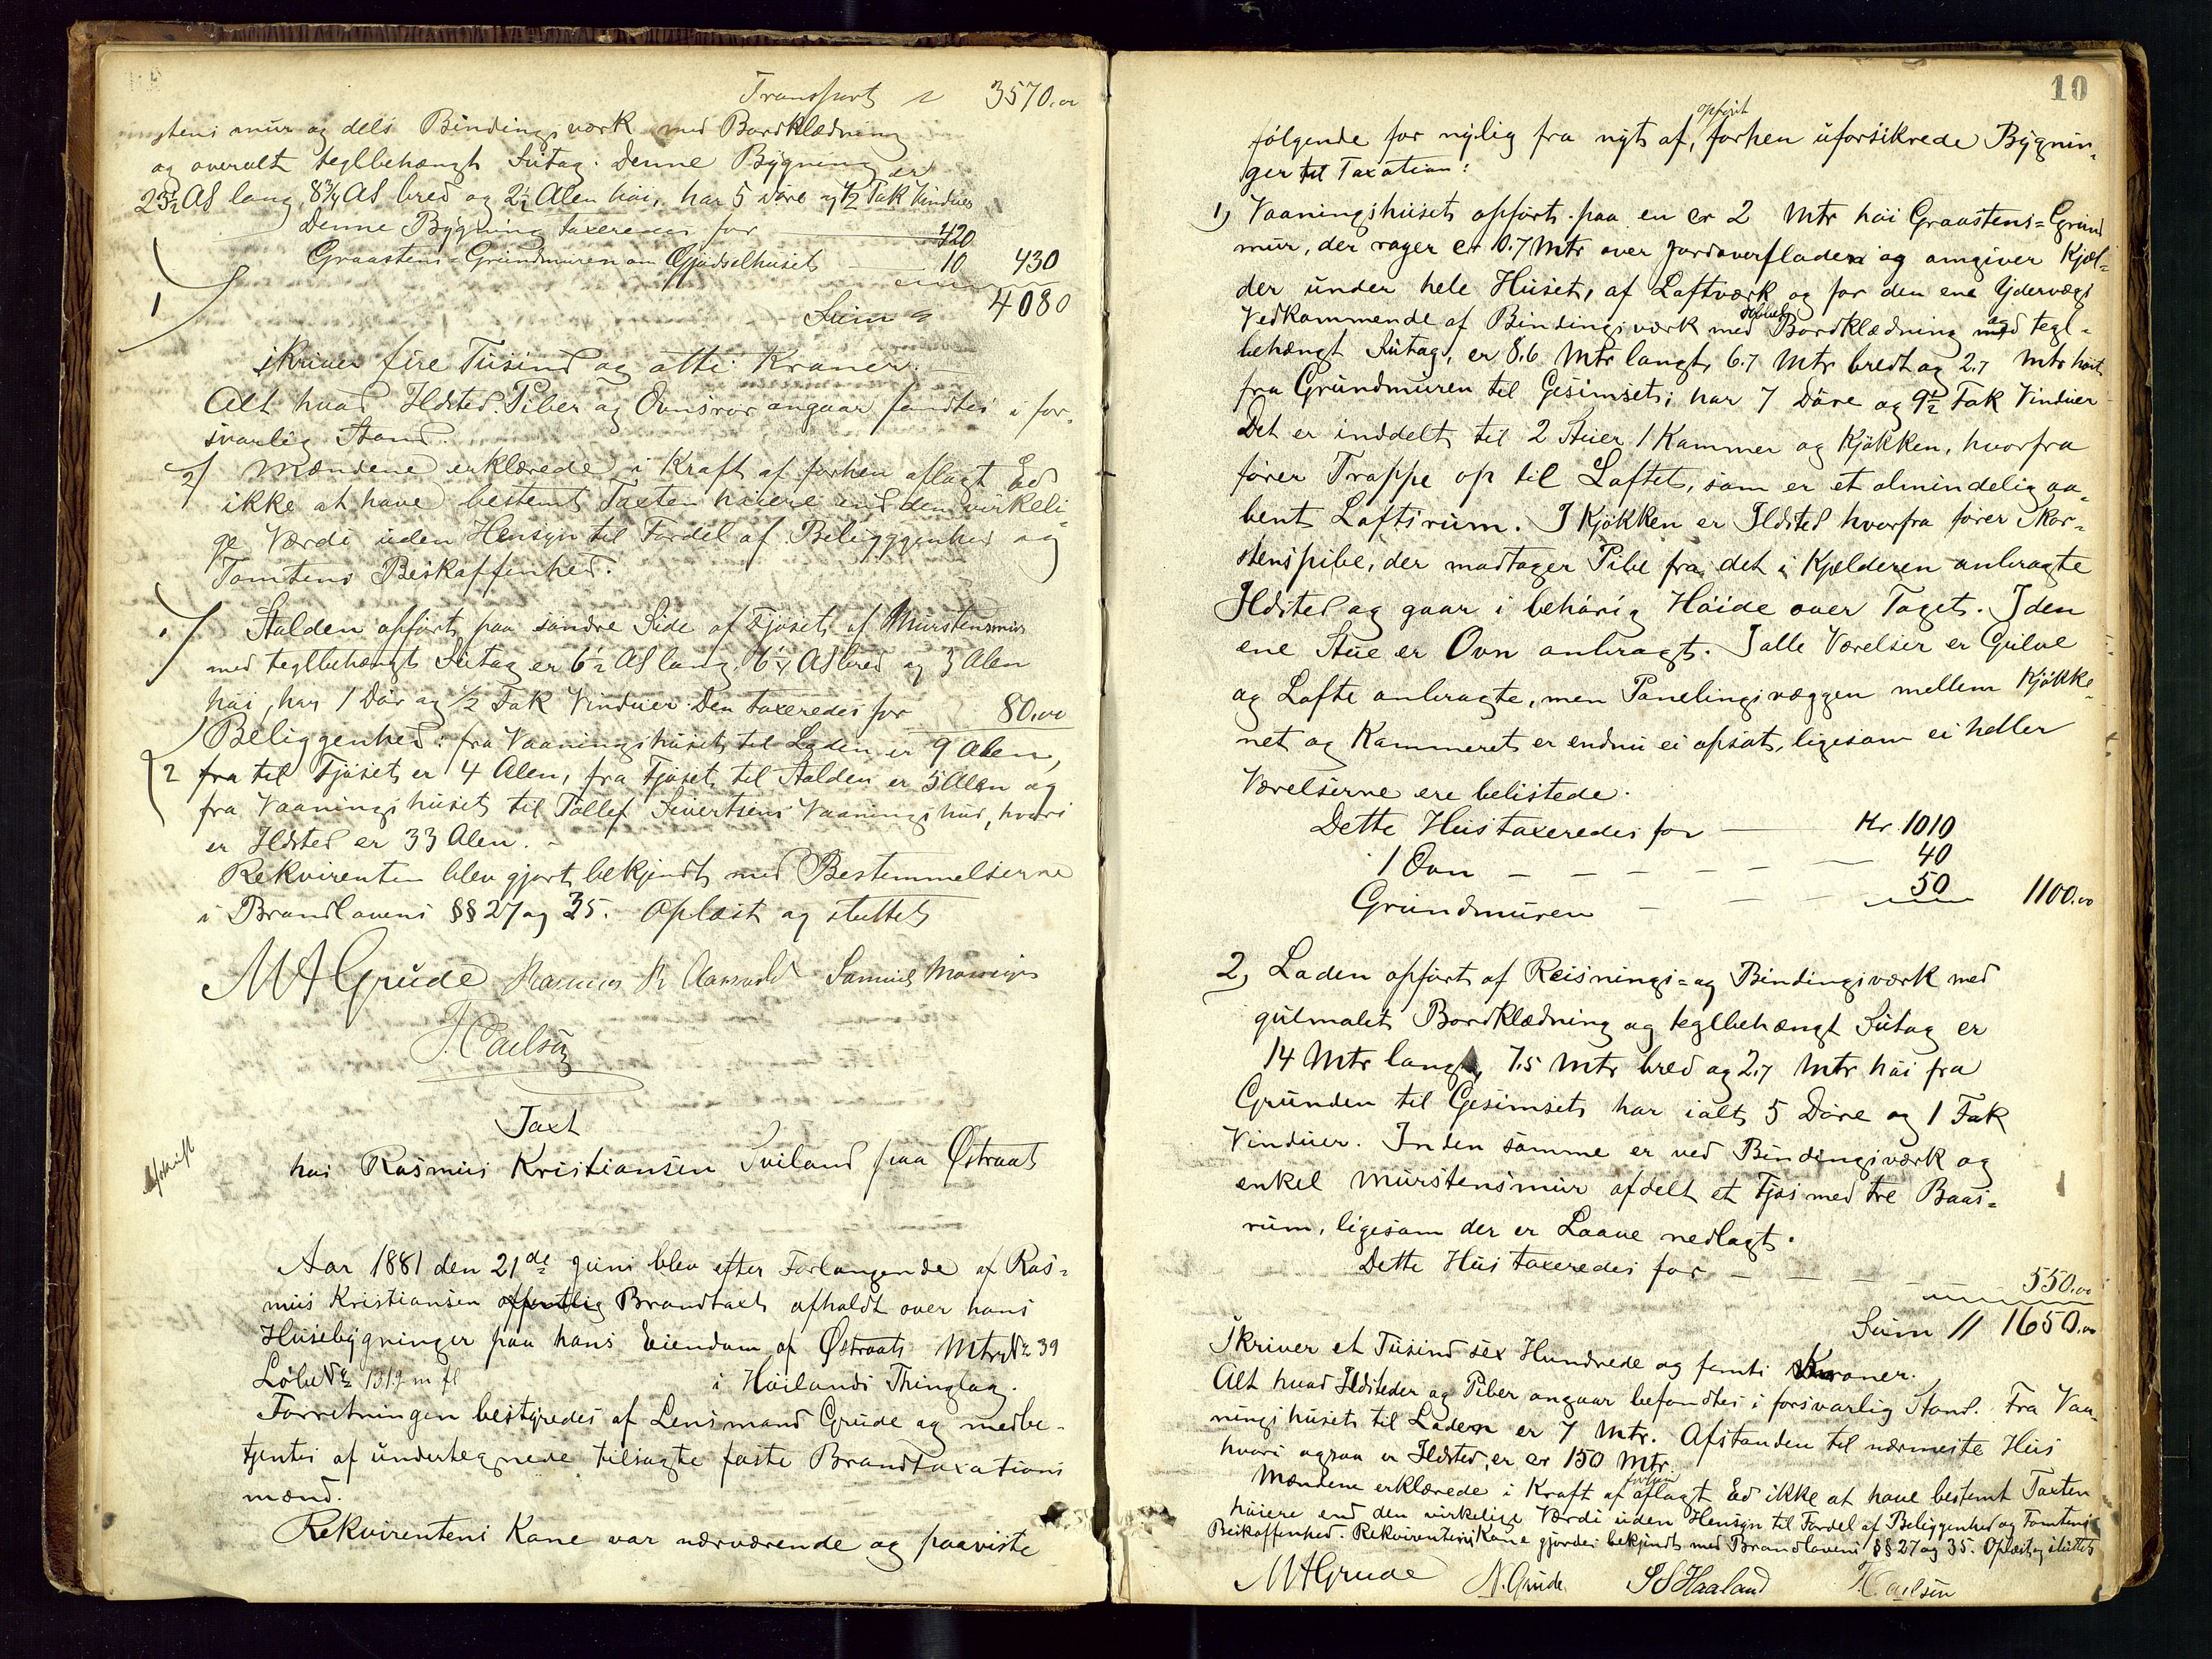 Transport 3570.00
stens mur og dels Bindingsværk med Bordklædning
og overalt teglbehængt Sutag. Denne Bygning er
23½ Al lang, 8¾ Al bred og 2½ Alen høi, har 5 Døre og ½ Fak Vinduer
Denne Bygning taxeredes for 420
Graastens-Grundmuren om Gjødselhuset 10 430
1 Sum 4080
skriver fire Tusind og otti Kroner.
Alt hvad Ildsted. Piber og Ovnsrør angaar fandtes i for-
svarlig Stand.
2/ Mændene erklærede i Kraft af forhen aflagt Ed
ikke at have bestemt Taxten høiere end den virkeli-
ge Værdi uden Hensyn til Fordel af Beligggenhed og
Tomtens Beskaffenhed.
1/ Stalden opført paa søndre Side af Fjøset af Murstensmur
med teglbehængt Sutag er 6½ Al lang, 6¼ Al bred og 3 Alen
høi, har 1 Dør og ½ Fak Vinduer. Den taxeredes for 80.00
Beliggenhed: fra Vaaningshuset til Laden er 9 Alen,
2 fra til Fjøset er 4 Alen, fra Fjøset til Stalden er 5 Alen og
fra Vaaningshuset til Tollef Sivertsens Vaaningshus, hvori
er Ildsted er 33 Alen.
Rekvirenten blev gjort bekjendt med Bestemmelserne
i Brandlovens §§ 27 og 35. Oplæst og sluttet
M A Grude Rasmus R Samuel
T. Carlsen
Taxt
Afskrift
hos Rasmus Kristiansen Sviland paa Østraat
Aar 1881 den 21de Juni blev efter Forlangende af Ras-
mus Kristiansen offentlig Brandtaxt afholdt over hans
Husebygninger paa hans Eiendom af Østraat Mtr№ 39
Løbe№ 1319 m fl i Høilands Thinglag.
Forretningen bestyredes af Lensmand Grude og medbe-
tjentes af undertegnede tilsagte faste Brandtaxations
mænd.
Rekvirentens Kone var nærværende og paaviste
10
følgende for nylig fra nyt af, opført forhen uforsikrede Bygnin-
ger til Taxation:
1) Vaaningshuset opført paa en cr 2 Mtr høi Graastens-Grund
mur, der rager cr 0.7 Mtr over Jordoverfladen og omgiver Kjæl-
der under hele Huset, af Laftværk og for den ene Ydervægs
Vedkommende af Bindingsværk med dobbelt Bordklædning og tegl-
behængt Sutag, er 8.6 Mtr langt, 6.7 Mtr bredt og 2.7 Mtr høit
fra Grundmuren til Gesimset; har 7 Døre og 9½ Fak Vinduer
Det er inddelt til 2 Stuer 1 Kammer og Kjøkken, hvorfra
fører Trappe op til Loftet, som er et almindelig aa-
bent Loftsrum. I Kjøkken er Ildsted hvorfra fører Skor-
stenspibe, der modtager Pibe fra det i Kjelderen anbragte
Ildsted og gaar i behørig Høide over Taget. I den
ene Stue er Ovn anbragt. I alle Værelser er Gulve
og Lofte anbragte, men Panelingsvæggen mellem Kjøkke-
net og Kammeret er endnu ei opsat, ligesom ei heller
Værelserne ere belistede.
Dette Hus taxeredes for Kr. 1010
1 Ovn 40
Grundmuren 50 1100.00
2) Laden opført af Reisnings- og Bindingsværk med
gulmalet Bordklædning og teglbehængt Sutag er
14 Mtr lang, 7.5 Mtr bred og 2.7 Mtr høi fra
Grunden til Gesimset har ialt 5 Døre og 1 Fak
Vinduer. Inden samme er ved Bindingsværk og
enkel Murstensmur afdelt et Fjøs med tre Baas-
rum, ligesom der er Laave nedlagt.
Dette Hus taxeredes for 550.00
Sum 1650.00
Skriver et Tusind sex Hundrede og femti Kroner.
Alt hvad Ildsteder og Piber angaar befandtes i forsvarlig Stand. Fra Vaa-
ningshuset til Laden er 7 Mtr. Afstanden til nærmeste Hus
hvori ogsaa er Ildsted, er cr 150 Mtr.
Mændene erklærede i Kraft af forhen aflagt Ed ikke at have bestemt Taxten
høiere end den virkelige Værdi uden Hensyn til Fordel af Beliggenhed og Tomtens
Beskaffenhed. Rekvirentens Kone gjordes bekjendt med Brandlovens §§ 27 og 35. Oplæst og sluttet
M A Grude N. Grude S S Haaland T. Carlsen